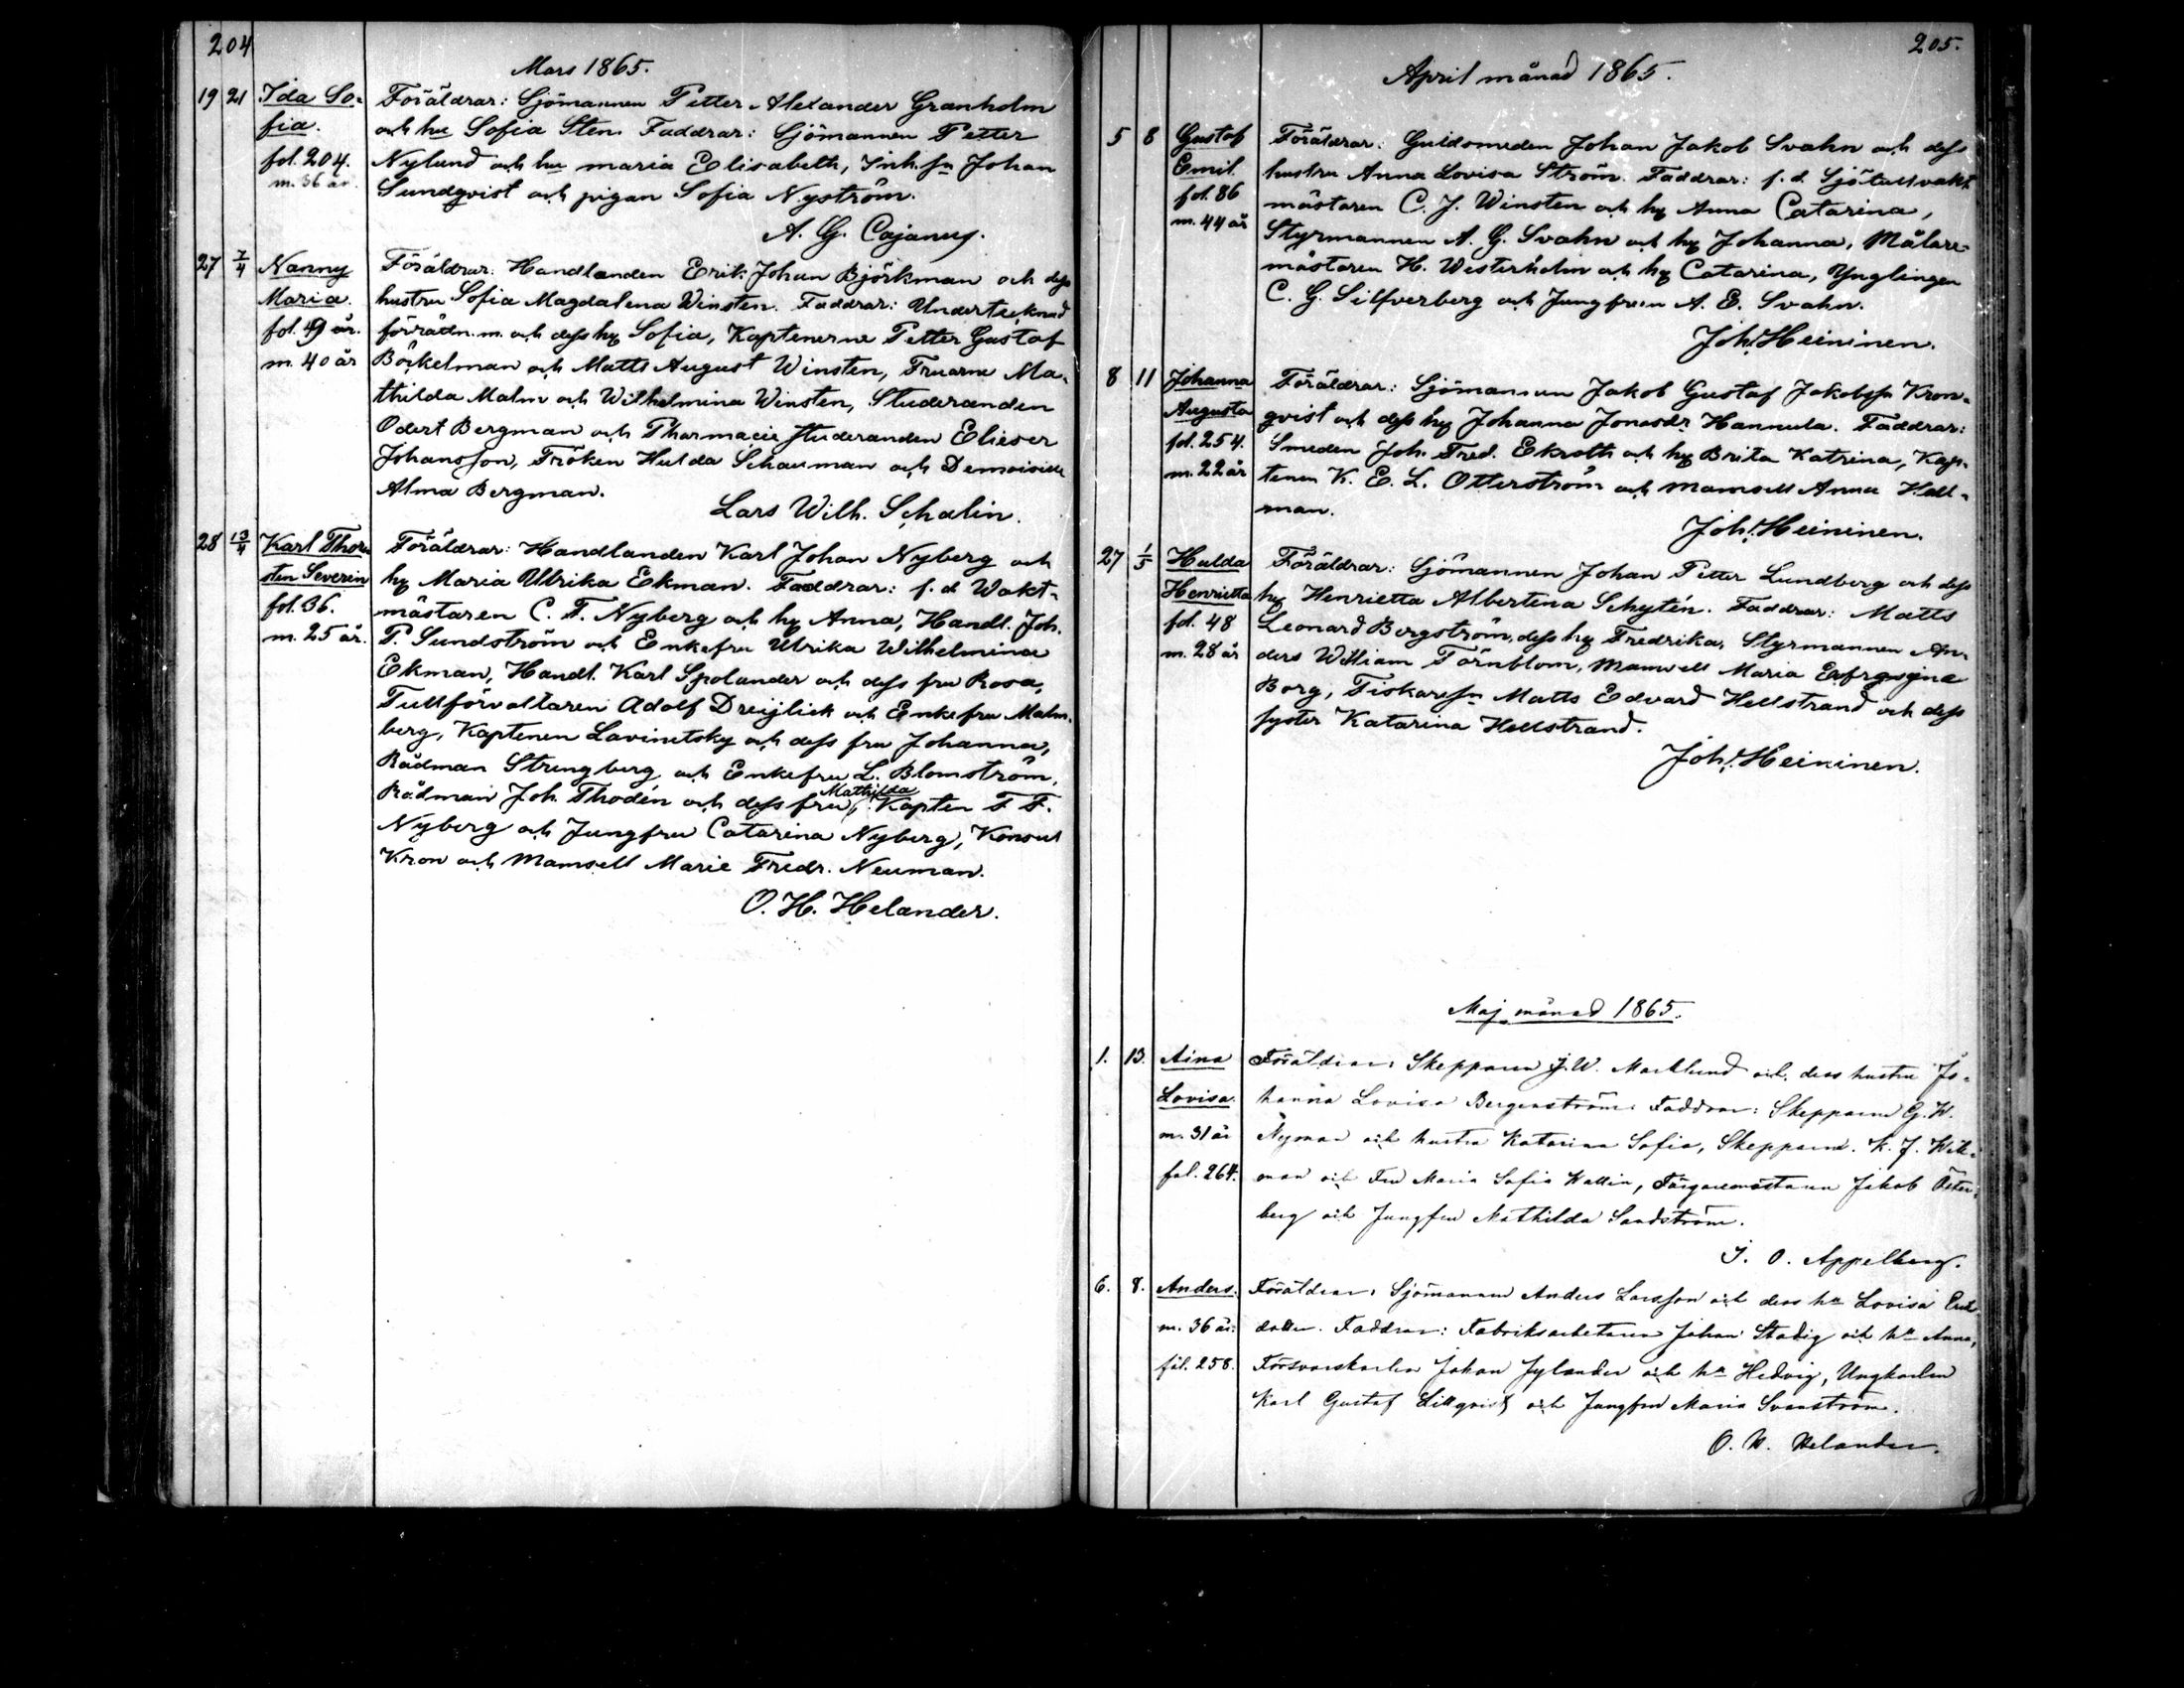 204
Mars 1865.
19 21 Ida So-
fia.
fol. 204.
m. 36 år.
Föräldrar: Sjömannen Petter Alexander Granholm
och hu Sofia Sten. Faddrar: Sjömannen Petter
Nylund och hu maria Elisabeth, Inh.sn Johan
Sundqvist och pigan Sofia Nyström.
A. G. Cajanus.
27 7/4 Nanny
Maria.
fol. 49 år.
m. 40 år
Föräldrar: Handlanden Erik Johan Björkman och dess
hustru Sofia Magdalena Winsten. Faddrar: Undertecknad
förrädn. m. och dess hu Sofia, Kaptenerne Petter Gustaf
Böckelman och Matts August Winsten, Fruarna Ma-
thilda Malm och Wilhelmina Winsten, Studeranden
Odert Bergman och Pharmacie studeranden Elieser
Johansson, Fröken Hulda Schauman och Demoiselle
Alma Bergman.
Lars Wilh. Schalin.
28 13/4 Karl Thor-
sten Severin
fol. 36.
m. 25 år.
Föräldrar: Handlanden Karl Johan Nyberg och
hu Maria Ulrika Ekman. Faddrar: f. d. Wakt-
mästaren C. F. Nyberg och hu Anna, Handl. Joh.
P. Sundström och Enkefru Ulrika Wilhelmina
Ekman, Handl. Karl Spolander och dess fru Rosa,
Tullförvaltaren Adolf Dreijlick och Enkefru Malm-
berg, Kaptenen Lavinetsky och dess fru Johanna,
Rådman Strengberg och Enkefru L. Blomström,
Rådman Joh. Thodén och dess fru Mathilda, Kapten F. F.
Nyberg och Jungfru Catarina Nyberg, Konsul
Kron och Mamsell Marie Fredr. Neuman.
O. H. Helander.
205.
April månad 1865.
5 8 Gustaf
Emil
fol. 86
m. 44 år
Föräldrar: Guldsmeden Johan Jakob Svahn och dess
hustru Anna Lovisa Ström. Faddrar: f. d. Sjötullvakt
mästaren C. J. Winsten och hu Anna Catarina,
Styrmannen A. G. Svahn och hu Johanna, Målare-
mästaren H. Westerholm och hu Catarina, Ynglingen
C. G. Silfverberg och Jungfrun A. E. Svahn.
Joh. Heininen.
8 11 Johanna
Augusta
fol. 254.
m. 22 år
Föräldrar: Sjömannen Jakob Gustaf Jakobsson Kron-
qvist och dess hu Johanna Jonasdr Hannula. Faddrar:
Smeden Joh. Fred. Ekroth och hu Brita Katrina, Kap-
tenen K. E. L. Otterström och Mamsell Anna Hell-
man.
Joh. Heininen.
27 1/5 Hulda
Henrietta
fol. 48
m. 28 år
Föräldrar: Sjömannen Johan Petter Lundberg och dess
hu Henrietta Albertina Schytén. Faddrar: Matts
Leonard Bergström, dess hu Fredrika, Styrmannen An-
ders William Törnblom, Mamsell Maria
Borg, Fiskaresn Matts Edvard Hellstrand och dess
syster Katarina Hellstrand.
Joh. Heininen.
Maj månad 1865.
1. 13. Aina
Lovisa.
m. 31 år
fol. 264.
Föräldrar: Skepparen J. W. Marklund och dess hustru Jo-
hanna Lovisa Bergenström. Faddrar: Skepparen G. W.
Nyman och hustru Katarina Sofia, Skepparen K. J. Wik-
man och Fru Maria Sofia Wallin, Färgaremästaren Jakob Öster-
berg och Jungfru Mathilda Sandström.
J. O. Appelberg.
6. 8. Anders.
m. 36 år.
fol. 258.
Föräldrar: Sjömannen Anders Larsson och dess hu Lovisa
dotter. Faddrar: Fabriksarbetaren Johan Stadig och hu Anna,
Försvarskarlen Johan Jylander och hu Hedvig, Ungkarlen
Karl Gustaf Lillqvist och Jungfru Maria Svanström.
O. H. Helander.